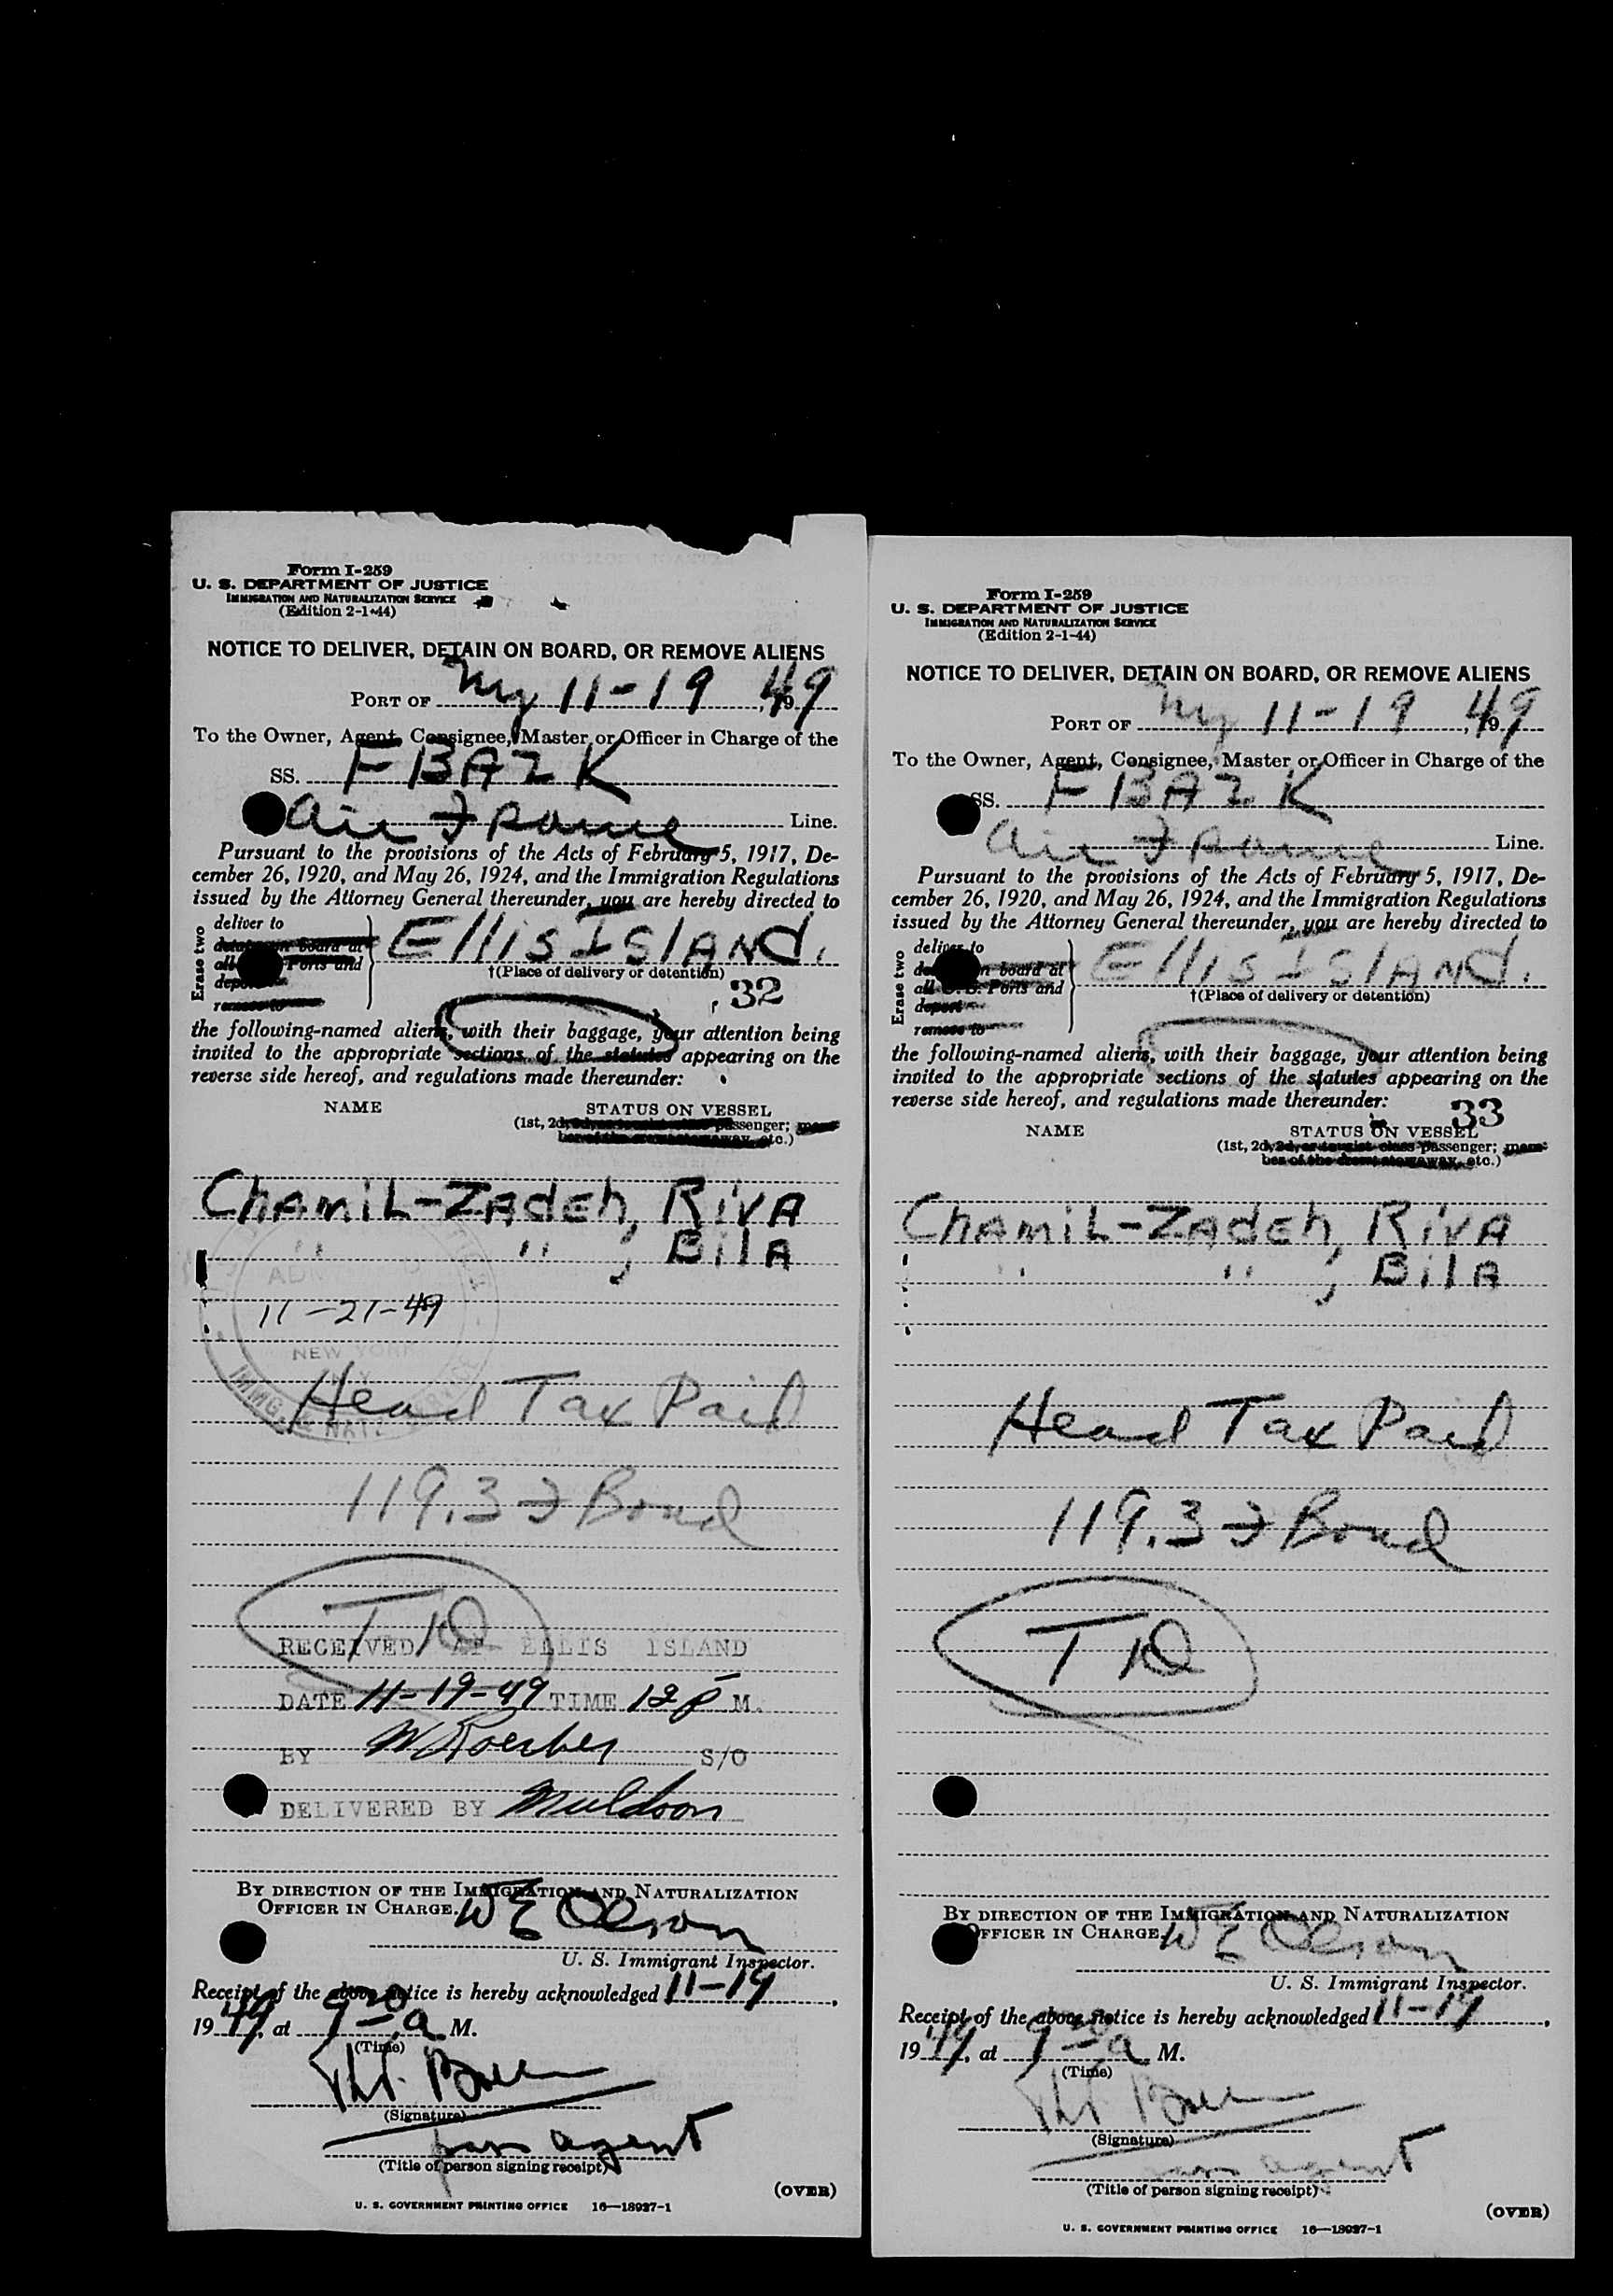 Form I-259
U. S. DEPARTMENT OF JUSTICE
IMMIGRATION AND NATURALIZATION SERVICE
(Edition 2-1-44)
NOTICE TO DELIVER, DETAIN ON BOARD, OR REMOVE ALIENS
PORT OF NY 11-19, 1949
To the Owner, Agent, Consignee, Master or Officer in Charge of the
SS. FBAZK
Air France Line.
Pursuant to the provisions of the Acts of February 5, 1917, De-
cember 26, 1920, and May 26, 1924, and the Immigration Regulations
issued by the Attorney General thereunder, you are hereby directed to
Erase two
deliver to
detain on board at
all Ports and
deport
remove to
Ellis Island.
†(Place of delivery or detention)
32
the following-named aliens, with their baggage, your attention being
invited to the appropriate sections of the statutes appearing on the
reverse side hereof, and regulations made thereunder:
NAME STATUS ON VESSEL
(1st, 2d, 3d, or tourist class passenger; mem-
ber of the crew, stowaway, etc.)
Chamil-Zadeh, Riva
" " , Bila
11-21-49
NEW YORK
IMMIG. & NAT.
Head Tax Paid
119.3 F Bond
TD
RECEIVED AT ELLIS ISLAND
DATE 11-19-49 TIME 12 P M.
BY S/O
DELIVERED BY Muldoon
BY DIRECTION OF THE IMMIGRATION AND NATURALIZATION
OFFICER IN CHARGE.
W E Olson
U. S. Immigrant Inspector.
Receipt of the above notice is hereby acknowledged 11-19,
1949, at 9 30 a M.
(Time)
(Signature)
pass agent
(Title of person signing receipt)
(OVER)
U. S. GOVERNMENT PRINTING OFFICE 16—18937-1
Form I-259
U. S. DEPARTMENT OF JUSTICE
IMMIGRATION AND NATURALIZATION SERVICE
(Edition 2-1-44)
NOTICE TO DELIVER, DETAIN ON BOARD, OR REMOVE ALIENS
PORT OF NY 11-19, 1949
To the Owner, Agent, Consignee, Master or Officer in Charge of the
SS. FBAZK
Air France Line.
Pursuant to the provisions of the Acts of February 5, 1917, De-
cember 26, 1920, and May 26, 1924, and the Immigration Regulations
issued by the Attorney General thereunder, you are hereby directed to
Erase two
deliver to
detain on board at
all U. S. Ports and
deport
remove to
Ellis Island.
†(Place of delivery or detention)
the following-named aliens, with their baggage, your attention being
invited to the appropriate sections of the statutes appearing on the
reverse side hereof, and regulations made thereunder:
33
NAME STATUS ON VESSEL
(1st, 2d, 3d, or tourist class passenger; mem-
ber of the crew, stowaway, etc.)
Chamil-Zadeh, Riva
" " , Bila
Head Tax Paid
119.3 F Bond
TD
BY DIRECTION OF THE IMMIGRATION AND NATURALIZATION
OFFICER IN CHARGE.
W E Olson
U. S. Immigrant Inspector.
Receipt of the above notice is hereby acknowledged 11-19,
1949, at 9 30 a M.
(Time)
(Signature)
pass agent
(Title of person signing receipt)
(OVER)
U. S. GOVERNMENT PRINTING OFFICE 16—18937-1